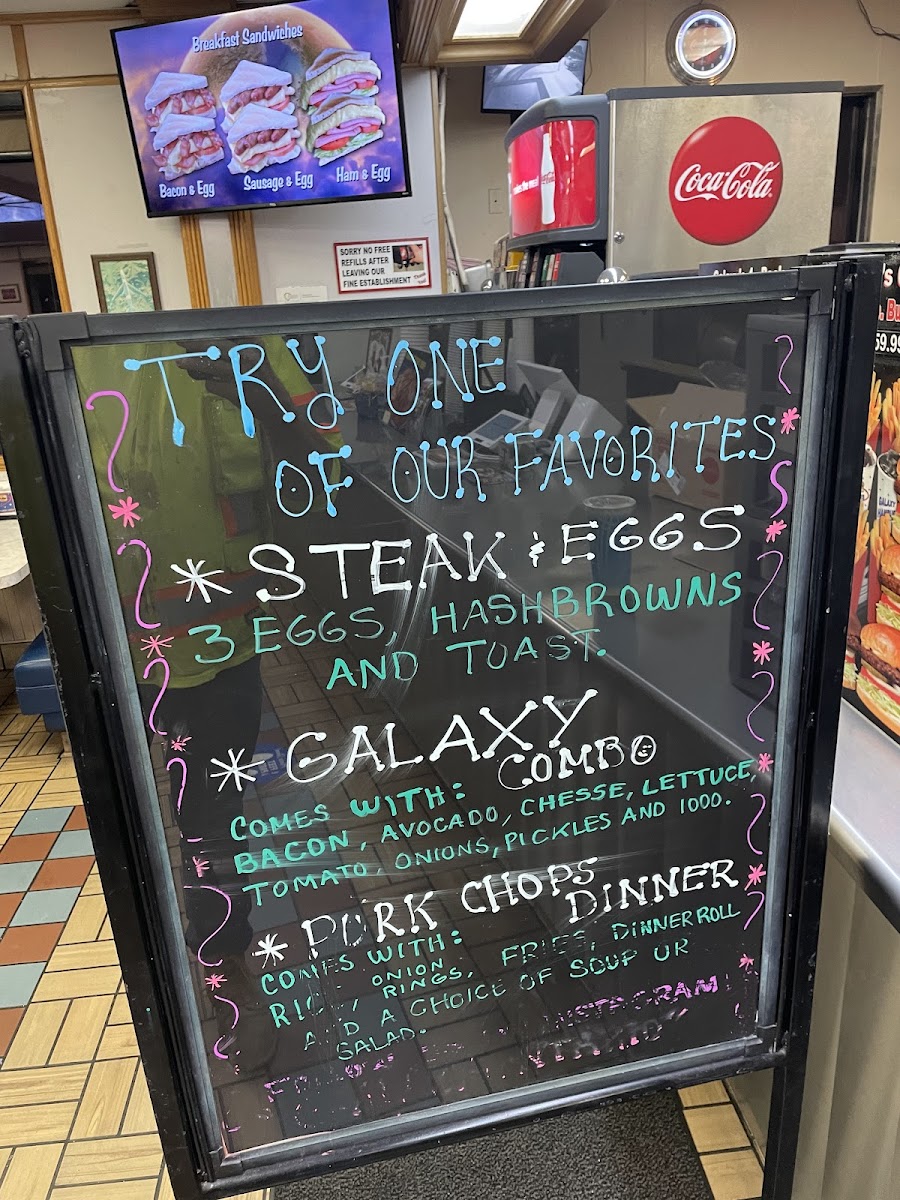 Breakfast Sandwiches
Bacon & Egg
Sausage & Egg
Ham & Egg
Coca-Cola
SORRY NO FREE
REFILLS AFTER
LEAVING OUR
FINE ESTABLISHMENT
TRY ONE
OF OUR FAVORITES
*STEAK & EGGS
3 EGGS, HASHBROWNS
AND TOAST.
*GALAXY
COMBO
COMES WITH:
BACON, AVOCADO, CHESSE, LETTUCE,
TOMATO, ONIONS, PICKLES AND 1000.
*PORK CHOPS
DINNER
COMES WITH:
RICE, ONION RINGS, FRIES, DINNER ROLL
AND A CHOICE OF SOUP OR
SALAD.
INSTAGRAM
GALAXY